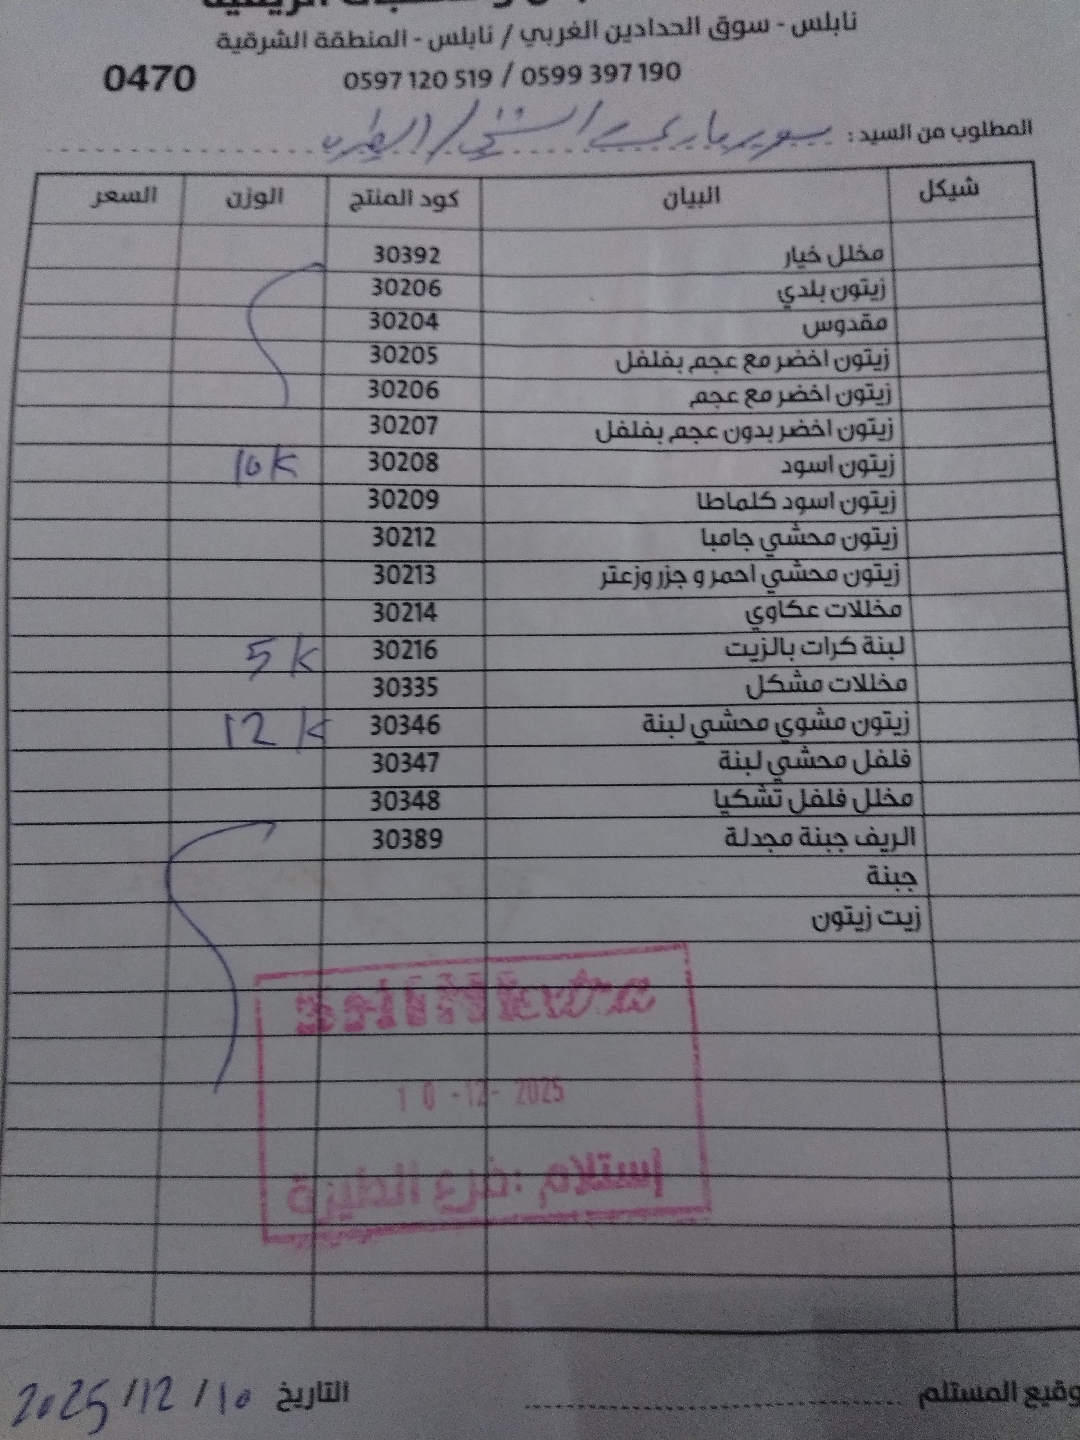 نابلس - سوق الحدادين الغربي / نابلس - المنطقة الشرقية
0470
0597 120 519 / 0599 397 190
المطلوب من السيد :
شيكل البيان كود المنتج الوزن السعر
مخلل خيار 30392
زيتون بلدي 30206
مقدوس 30204
زيتون اخضر مع عجم بفلفل 30205
زيتون اخضر مع عجم 30206
زيتون اخضر بدون عجم بفلفل 30207
زيتون اسود 30208 10 K
زيتون اسود كلماطا 30209
زيتون محشي جامبا 30212
زيتون محشي احمر و جزر وزعتر 30213
مخللات عكاوي 30214
لبنة كرات بالزيت 30216 5 K
مخللات مشكل 30335
زيتون مشوي محشي لبنة 30346 12 K
فلفل محشي لبنة 30347
مخلل فلفل تشكيا 30348
الريف جبنة مجدلة 30389
جبنة
زيت زيتون
10 -12- 2025
إستلام : فرع الطيرة
وقيع المستلم
التاريخ 10 / 12 / 2025